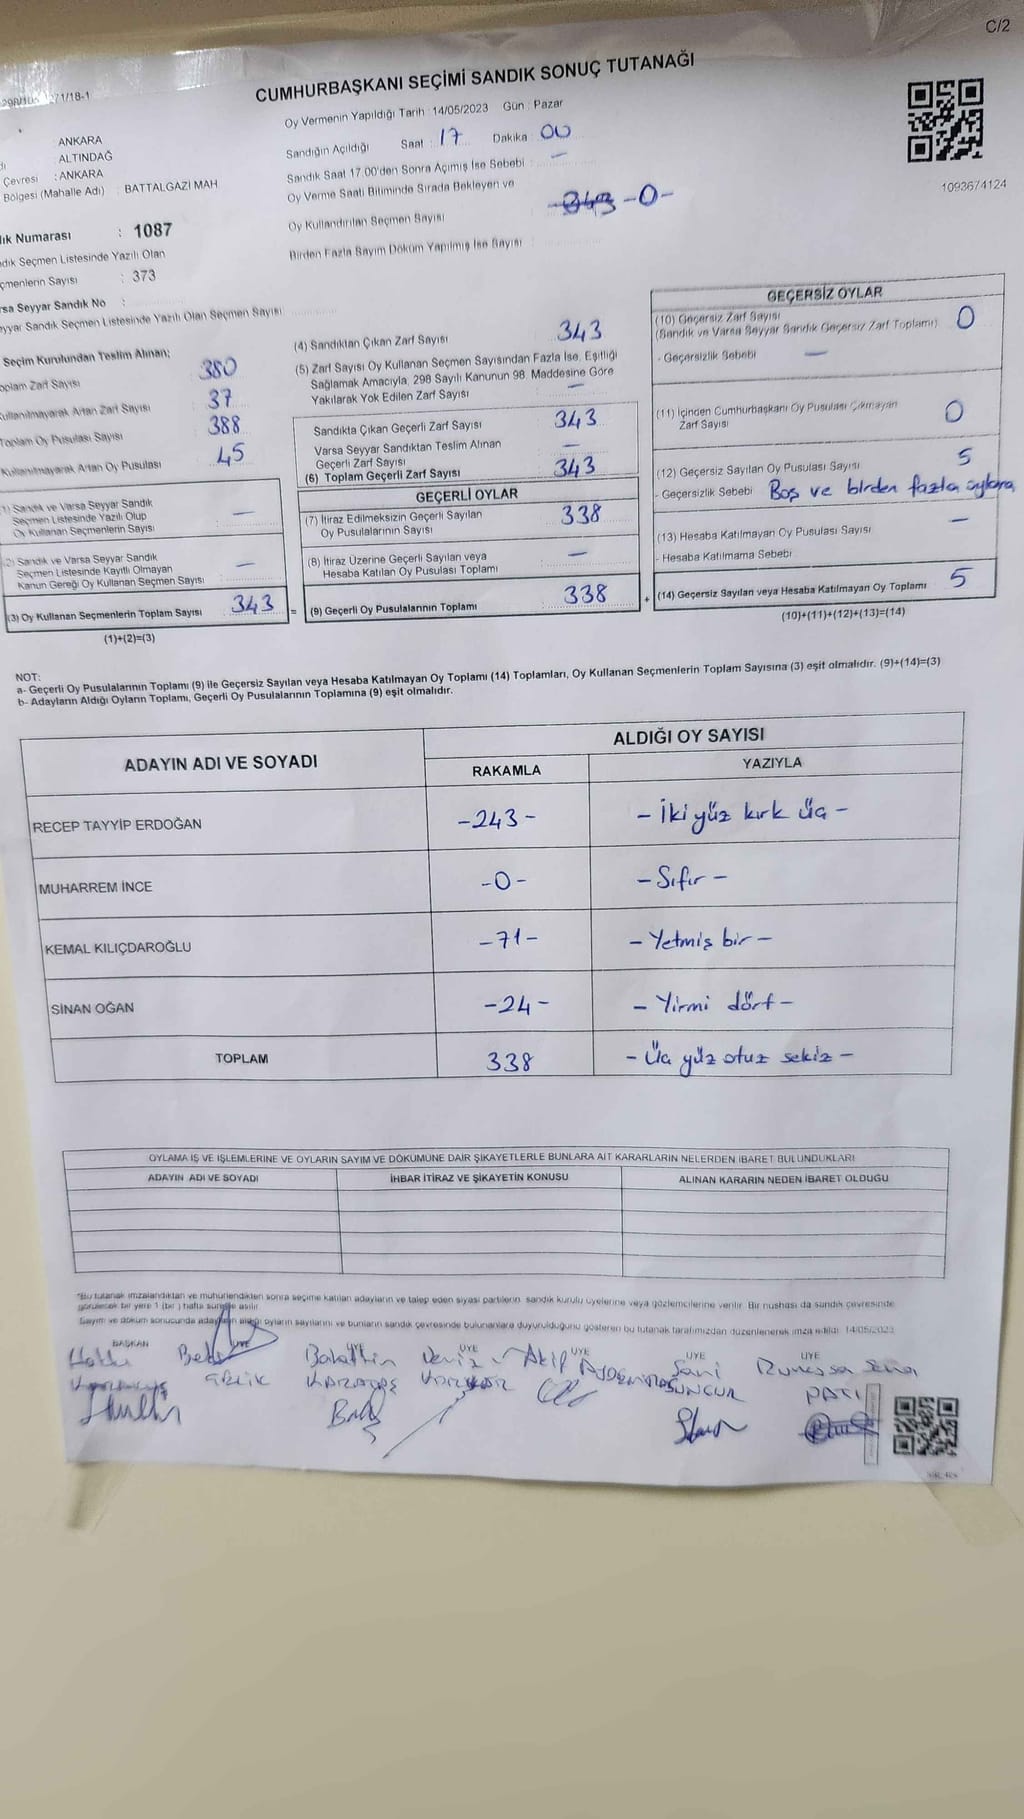 C/2
CUMHURBAŞKANI SEÇİMİ SANDIK SONUÇ TUTANAĞI
71/18-1
Oy Vermenin Yapıldığı Tarih : 14/05/2023 Gün : Pazar
ANKARA
Sandığın Açıldığı Saat : 17 Dakika : 00
ALTINDAĞ
Sandık Saat 17.00'den Sonra Açımış İse Sebebi : —
Çevresi : ANKARA
Bölgesi (Mahalle Adı) : BATTALGAZİ MAH
Oy Verme Saati Bitiminde Sırada Bekleyen ve
Oy Kullandırılan Seçmen Sayısı 343 -0-
1093674124
lık Numarası : 1087
Birden Fazla Sayım Döküm Yapılmış İse Sayısı :
dık Seçmen Listesinde Yazılı Olan
çmenlerin Sayısı : 373
rsa Seyyar Sandık No :
eyyar Sandık Seçmen Listesinde Yazılı Olan Seçmen Sayısı :
Seçim Kurulundan Teslim Alınan;
oplam Zarf Sayısı 380
Kullanılmayarak Artan Zarf Sayısı 37
Toplam Oy Pusulası Sayısı 388
Kullanılmayarak Artan Oy Pusulası 45
1) Sandık ve Varsa Seyyar Sandık
Seçmen Listesinde Yazılı Olup
Oy Kullanan Seçmenlerin Sayısı —
2) Sandık ve Varsa Seyyar Sandık
Seçmen Listesinde Kayıtlı Olmayan
Kanun Gereği Oy Kullanan Seçmen Sayısı —
(3) Oy Kullanan Seçmenlerin Toplam Sayısı 343 =
(1)+(2)=(3)
(4) Sandıktan Çıkan Zarf Sayısı 343
(5) Zarf Sayısı Oy Kullanan Seçmen Sayısından Fazla İse, Eşitliği
Sağlamak Amacıyla, 298 Sayılı Kanunun 98. Maddesine Göre
Yakılarak Yok Edilen Zarf Sayısı —
Sandıkta Çıkan Geçerli Zarf Sayısı 343
Varsa Seyyar Sandıktan Teslim Alınan
Geçerli Zarf Sayısı —
(6) Toplam Geçerli Zarf Sayısı 343
GEÇERLİ OYLAR
(7) İtiraz Edilmeksizin Geçerli Sayılan
Oy Pusulalarının Sayısı 338
(8) İtiraz Üzerine Geçerli Sayılan veya
Hesaba Katılan Oy Pusulası Toplamı —
(9) Geçerli Oy Pusulalarının Toplamı 338 +
GEÇERSİZ OYLAR
(10) Geçersiz Zarf Sayısı
(Sandık ve Varsa Seyyar Sandık Geçersiz Zarf Toplamı) 0
- Geçersizlik Sebebi —
(11) İçinden Cumhurbaşkanı Oy Pusulası Çıkmayan
Zarf Sayısı 0
(12) Geçersiz Sayılan Oy Pusulası Sayısı 5
- Geçersizlik Sebebi Boş ve birden fazla oylama
(13) Hesaba Katılmayan Oy Pusulası Sayısı —
- Hesaba Katılmama Sebebi
(14) Geçersiz Sayılan veya Hesaba Katılmayan Oy Toplamı 5
(10)+(11)+(12)+(13)=(14)
NOT:
a- Geçerli Oy Pusulalarının Toplamı (9) ile Geçersiz Sayılan veya Hesaba Katılmayan Oy Toplamı (14) Toplamları, Oy Kullanan Seçmenlerin Toplam Sayısına (3) eşit olmalıdır. (9)+(14)=(3)
b- Adayların Aldığı Oyların Toplamı, Geçerli Oy Pusulalarının Toplamına (9) eşit olmalıdır.
ADAYIN ADI VE SOYADI ALDIĞI OY SAYISI
RAKAMLA YAZIYLA
RECEP TAYYİP ERDOĞAN -243- - İki yüz kırk üç -
MUHARREM İNCE -0- - Sıfır -
KEMAL KILIÇDAROĞLU -71- - Yetmiş bir -
SİNAN OĞAN -24- - Yirmi dört -
TOPLAM 338 - Üç yüz otuz sekiz -
OYLAMA İŞ VE İŞLEMLERİNE VE OYLARIN SAYIM VE DÖKÜMÜNE DAİR ŞİKAYETLERLE BUNLARA AİT KARARLARIN NELERDEN İBARET BULUNDUKLARI
ADAYIN ADI VE SOYADI İHBAR İTİRAZ VE ŞİKAYETİN KONUSU ALINAN KARARIN NEDEN İBARET OLDUĞU
*Bu tutanak imzalandıktan ve mühürlendikten sonra seçime katılan adayların ve talep eden siyasi partilerin sandık kurulu üyelerine veya gözlemcilerine verilir. Bir nüshası da sandık çevresinde
görülecek bir yere 1 (bir ) hafta süreyle asılır.
Sayım ve döküm sonucunda adayların aldığı oyların sayılarını ve bunların sandık çevresinde bulunanlara duyurulduğunu gösteren bu tutanak tarafımızdan düzenlenerek imza edildi. 14/05/2023
BAŞKAN ÜYE ÜYE ÜYE ÜYE ÜYE
Akif Sani
SUNGUR PATI